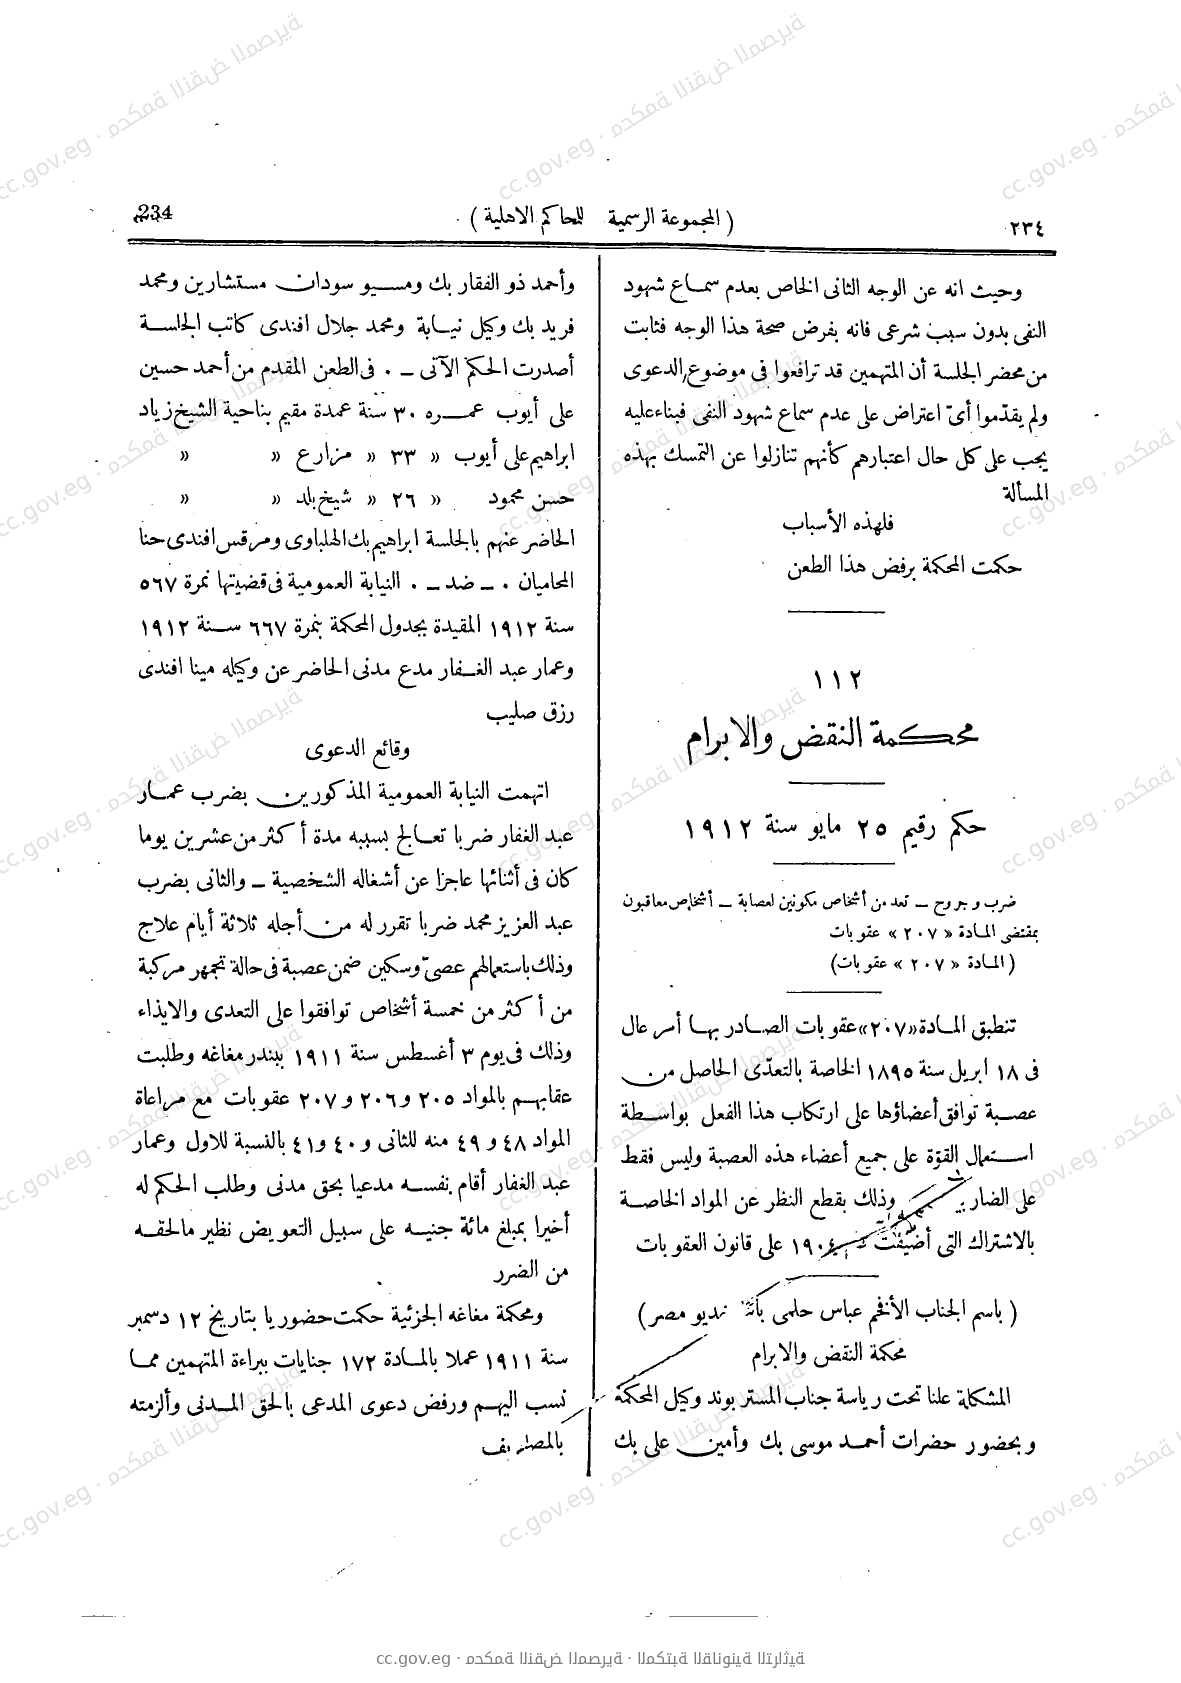 ٢٣٤
( المجموعة الرسمية للحاكم الاهلية )
234
وحيث انه عن الوجه الثانى الخاص بعدم سماع شهود
النفى بدون سبب شرعى فانه بفرض صحة هذا الوجه فثابت
من محضر الجلسة أن المتهمين قد ترافعوا فى موضوع الدعوى
ولم يقدّموا أىّ اعتراض على عدم سماع شهود النفى فبناء عليه
يجب على كل حال اعتبارهم كأنهم تنازلوا عن التمسك بهذه
المسألة
فلهذه الأسباب
حكمت المحكمة برفض هذا الطعن
١١٢
محكمة النقض والابرام
حكم رقيم ٢٥ مايو سنة ١٩١٢
ضرب وجروح – تعد من أشخاص مكونين لعصابة – أشخاص معاقبون
بمقتضى المادة « ٢٠٧ » عقوبات
( المادة « ٢٠٧ » عقوبات)
تنطبق المادة «٢٠٧» عقوبات الصادر بها أمر عال
فى ١٨ ابريل سنة ١٨٩٥ الخاصة بالتعدّى الحاصل من
عصبة توافق أعضاؤها على ارتكاب هذا الفعل بواسطة
استعمال القوّة على جميع أعضاء هذه العصبة وليس فقط
على الضاربين وذلك بقطع النظر عن المواد الخاصة
بالاشتراك التى أضيفت ١٩٠٤ على قانون العقوبات
( باسم الجناب الأفخم عباس حلمى باشا خديو مصر )
محكمة النقض والابرام
المشكلة علنا تحت رياسة جناب المستر بوند وكيل المحكمة
وبحضور حضرات أحمد موسى بك وأمين على بك
وأحمد ذو الفقار بك ومسيو سودان مستشارين ومحمد
فريد بك وكيل نيابة ومحمد جلال افندى كاتب الجلسة
أصدرت الحكم الآتى – ٠ فى الطعن المقدم من أحمد حسين
على أيوب عمره ٣٠ سنة عمدة مقيم بناحية الشيخ زياد
ابراهيم على أيوب « ٣٣ « مزارع « «
حسن محمود « ٢٦ « شيخ بلد « «
الحاضر عنهم بالجلسة ابراهيم بك الهلباوى ومرقس افندى حنا
المحاميان ٠ – ضد – ٠ النيابة العمومية فى قضيتها نمرة ٥٦٧
سنة ١٩١٢ المقيدة بجدول المحكمة بنمرة ٦٦٧ سنة ١٩١٢
وعمار عبد الغفار مدع مدنى الحاضر عن وكيله مينا افندى
رزق صليب
وقائع الدعوى
اتهمت النيابة العمومية المذكورين بضرب عمار
عبد الغفار ضربا تعالج بسببه مدة أكثر من عشرين يوما
كان فى أثنائها عاجزا عن أشغاله الشخصية – والثانى بضرب
عبد العزيز محمد ضربا تقرر له من أجله ثلاثة أيام علاج
وذلك باستعمالهم عصىّ وسكين ضمن عصبة فى حالة تجمهر مركبة
من أكثر من خمسة أشخاص توافقوا على التعدى والايذاء
وذلك فى يوم ٣ أغسطس سنة ١٩١١ ببندر مغاغه وطلبت
عقابهم بالمواد ٢٠٥ و ٢٠٦ و ٢٠٧ عقوبات مع مراعاة
المواد ٤٨ و ٤٩ منه للثانى و ٤٠ و ٤١ بالنسبة للاول وعمار
عبد الغفار أقام بنفسه مدعيا بحق مدنى وطلب الحكم له
أخيرا بمبلغ مائة جنيه على سبيل التعويض نظير ما لحقه
من الضرر
ومحكمة مغاغه الجزئية حكمت حضوريا بتاريخ ١٢ دسمبر
سنة ١٩١١ عملا بالمادة ١٧٢ جنايات ببراءة المتهمين مما
نسب اليهم ورفض دعوى المدعى بالحق المدنى وألزمته
بالمصاريف
cc.gov.eg · محكمة النقض المصرية · المكتبة القانونية التراثية